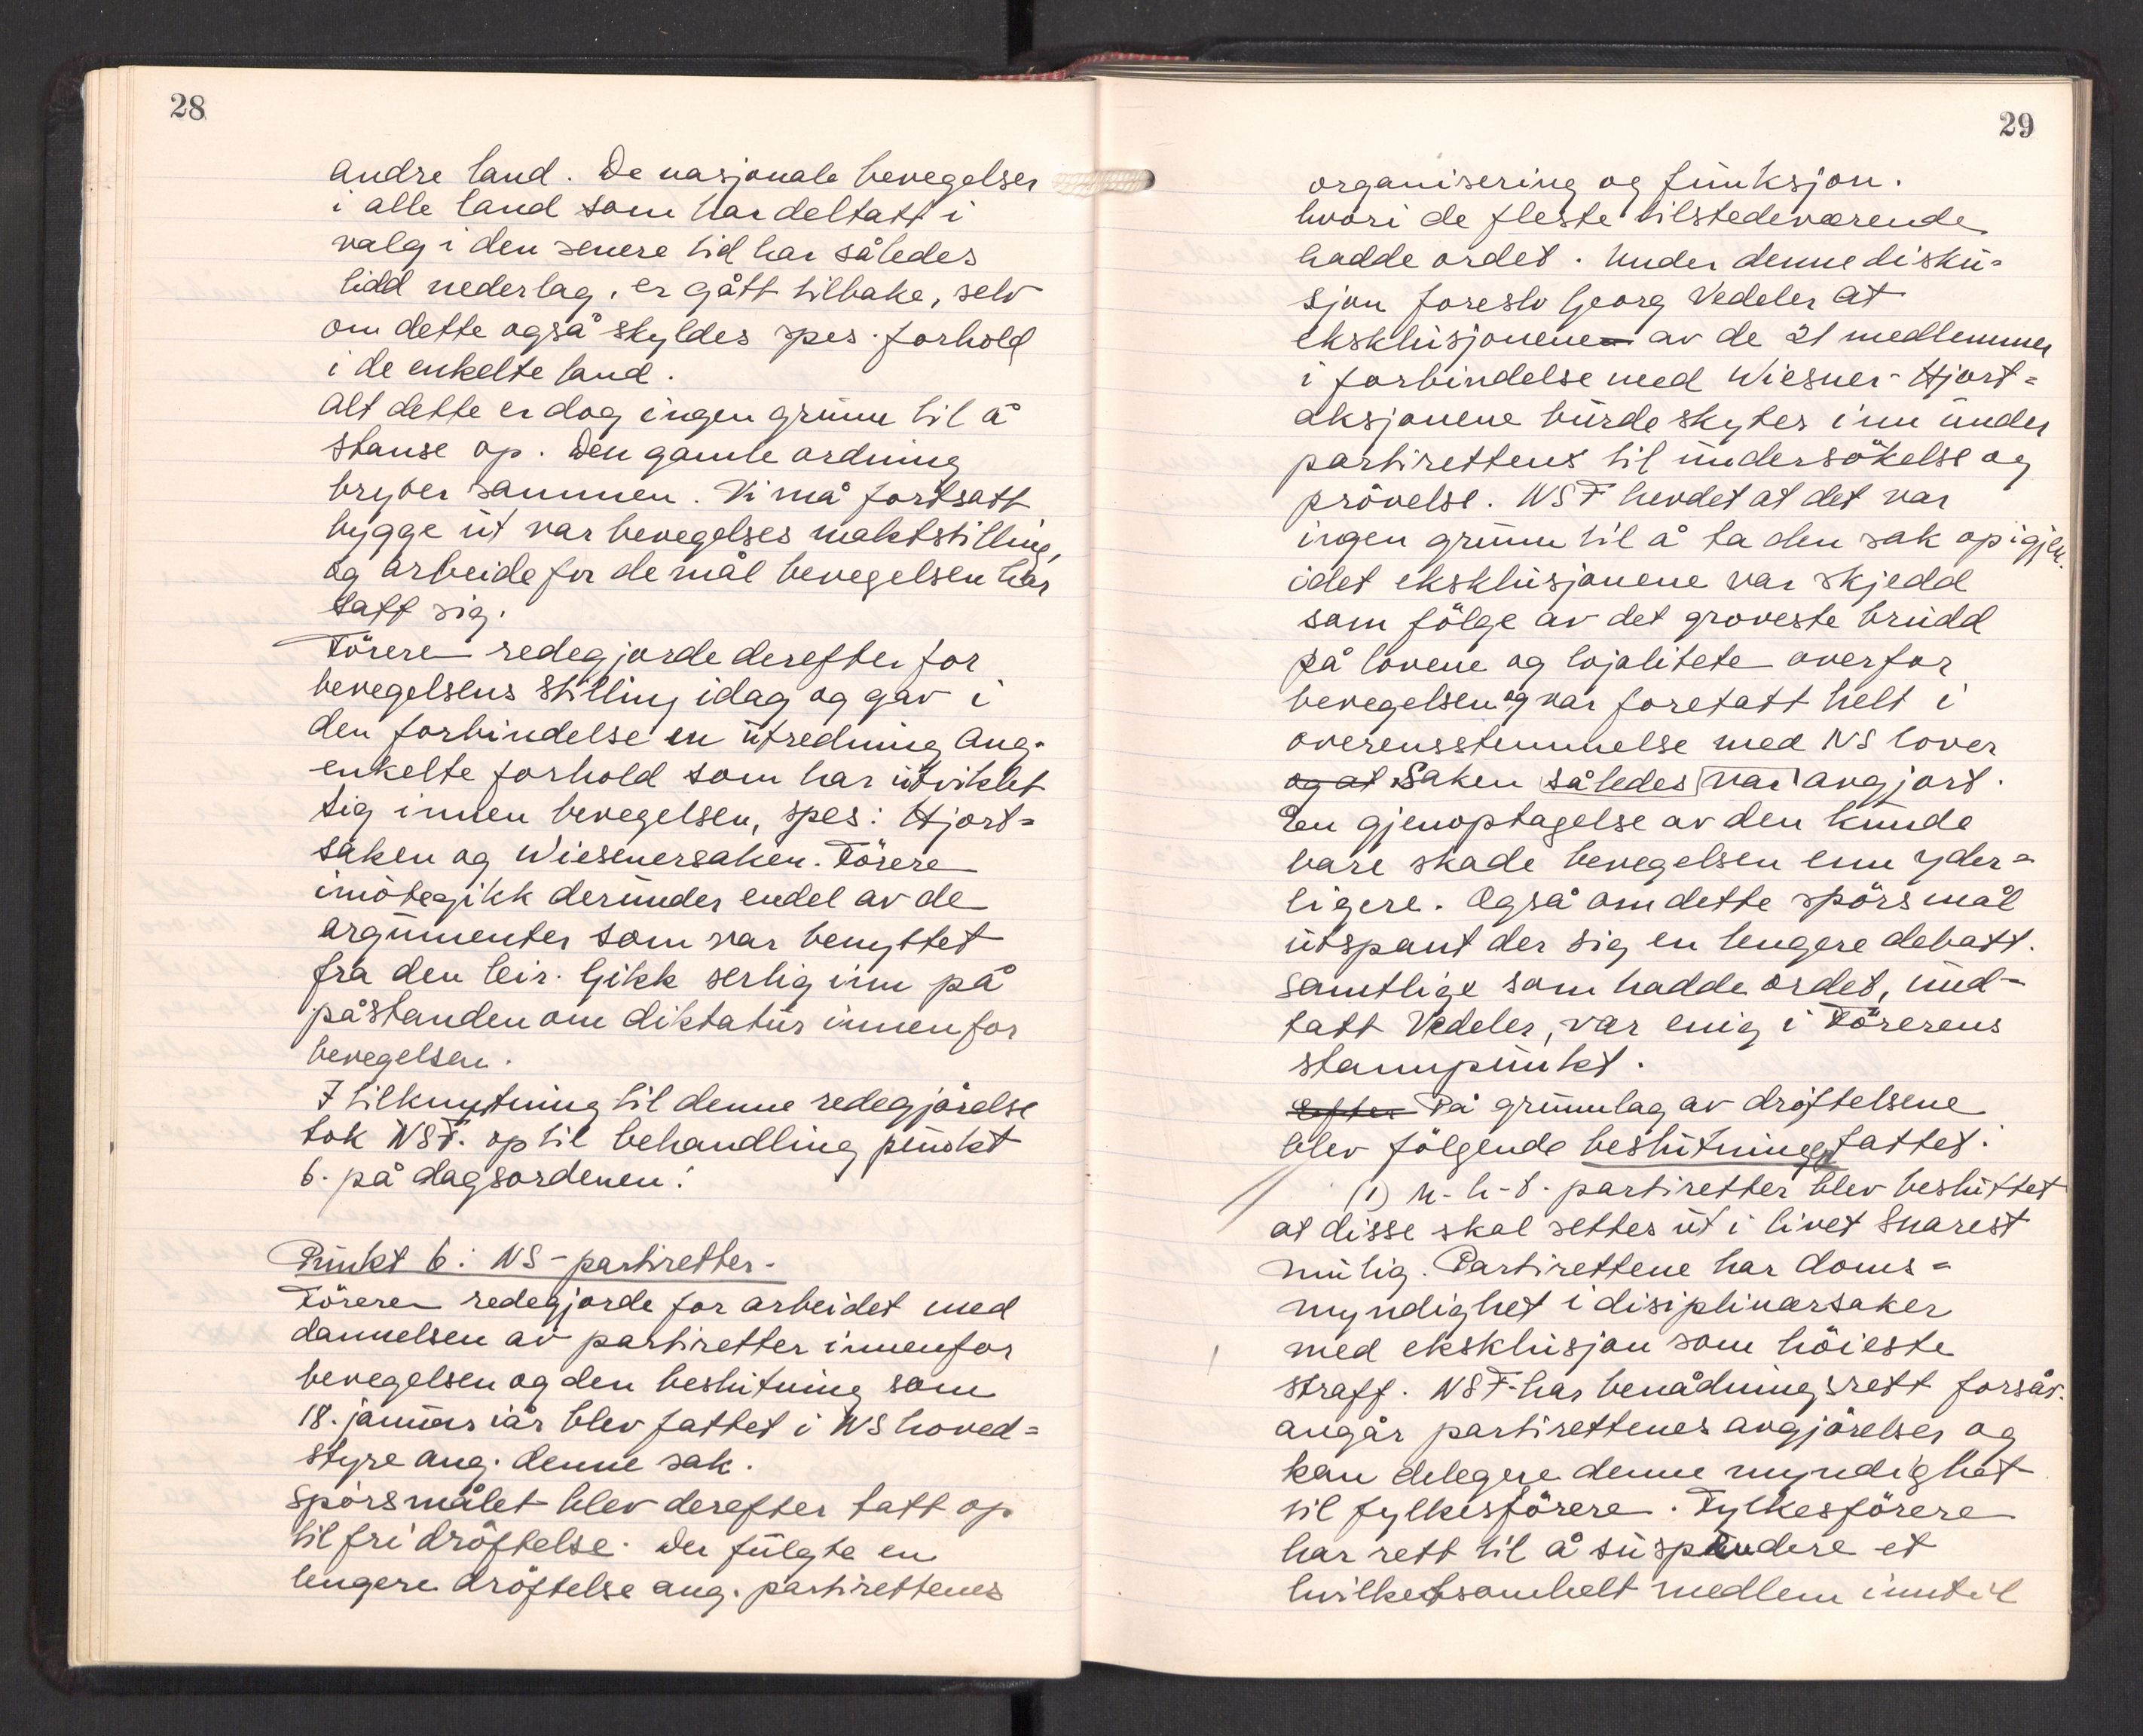 28
andre land. De nasjonale bevegelser
i alle land som har deltatt i
valg i den senere tid har således
lidd nederlag, er gått tilbake, selv
om dette også skyldes spes. forhold
i de enkelte land.
Alt dette er dog ingen grunn til å
stanse op. Den gamle ordning
bryter sammen. Vi må fortsatt
bygge ut vår bevegelses maktstilling,
og arbeide for de mål bevegelsen har
satt sig.
Föreren redegjorde derefter for
bevegelsens stilling idag og gav i
den forbindelse en utredning ang.
enkelte forhold som har utviklet
sig innen bevegelsen, spes: Hjort-
saken og Wiesenersaken. Föreren
imötegikk derunder endel av de
argumenter som var benyttet
fra den leir. Gikk serlig inn på
påstanden om diktatur innenfor
bevegelsen.
I tilknytning til denne redegjörelse
tok NSF. op til behandling punkt
6. på dagsordenen:
Punkt 6: NS-partiretter.
Föreren redegjorde for arbeidet med
dannelsen av partiretter innenfor
bevegelsen og den beslutning som
18. januar iår blev fattet i NS hoved-
styre ang. denne sak.
Spörsmålet blev derefter tatt op
til fri dröftelse. Der fulgte en
lengere dröftelse ang. partirettenes
29
organisering og funksjon.
hvori de fleste tilstedeværende
hadde ordet. Under denne disku-
sjon foreslo Georg Vedeler at
eksklusjonene av de 21 medlemmer
i forbindelse med Wiesner-Hjort-
aksjonene burde skytes inn under
partirettens til undersökelse og
prövelse. NSF hevdet at det var
ingen grunn til å ta den sak op igjen.
idet eksklusjonene var skjedd
som fölge av det groveste brudd
på lovene og lojalitete overfor
bevegelsen og var foretatt helt i
overensstemmelse med NS lover
og at Saken således var avgjort.
En gjenoptagelse av den kunde
bare skade bevegelsen enn yder-
ligere. Også om dette spörsmål
utspant der sig en lengere debatt.
Samtlige som hadde ordet, und-
tatt Vedeler, var enig i Förerens
stannpunkt.
Efter På grunnlag av dröftelsene
blev fölgende beslutninger fattet:
(1) M-h-t. partiretter blev besluttet
at disse skal settes ut i livet snarest
mulig. Partirettene har doms-
myndighet i disiplinærsaker
med eksklusjon som höieste
straff. NSF har benådningsrett forsåv.
angår partirettenes avgjörelser og
kan delegere denne myndighet
til fylkesförere. Fylkesförere
har rett til å suspendere et
hvilketsomhelt medlem inntil